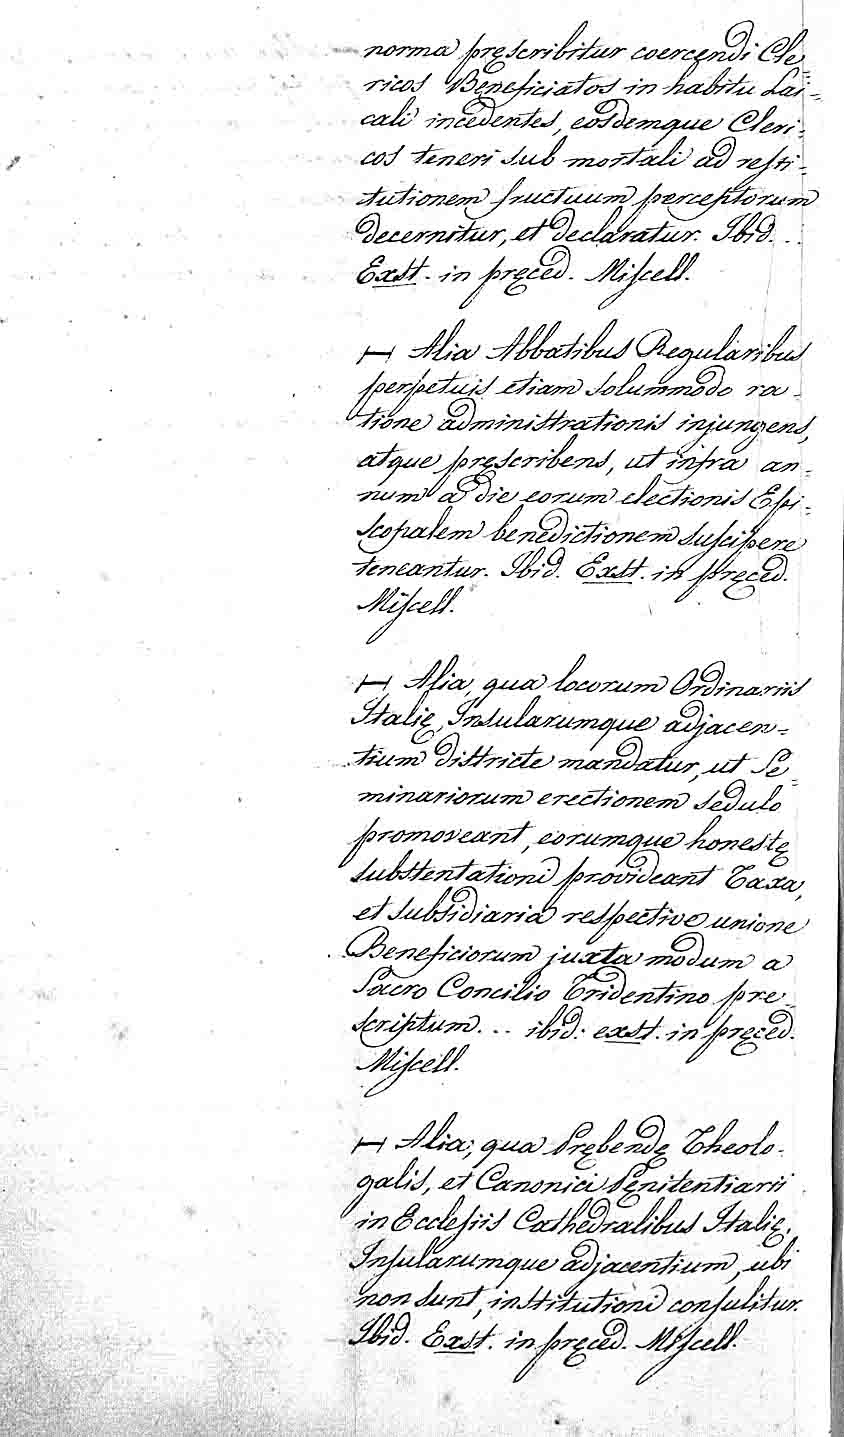 norma pręscribitur coercendi Cle=
ricos Beneficiatos in habitu Lai=
cali incedentes, eosdemque Cleri=
cos teneri sub mortali ad resti=
tutionem fructuum perceptorum
decernitur, et declaratur. Ibid...
Exst. in pręced. Miscell.
⊢ Alia Abbatibus Regularibus
perpetuis etiam solummodo ra=
tione administrationis injungens,
atque pręscribens, ut infra an=
num a die eorum electionis Epi=
scopalem benedictionem suscipere
teneantur. Ibid. Exst. in pręced.
Miscell.
⊢ Alia, qua locorum Ordinariis
Italię, Insularumque adjacen=
tium districte mandatur, ut Se=
minariorum erectionem sedulo
promoveant, eorumque honestę
substentationi provideant Taxa,
et subsidiaria respective unione
Beneficiorum juxta modum a
Sacro Concilio Tridentino pre=
scriptum... ibid: exst. in pręced.
Miscell.
⊢ Alia; qua Prębendę Theolo=
galis, et Canonici Pęnitentiarii
in Ecclesiis Cathedralibus Italię,
Insularumque adjacentium, ubi
non sunt, institutioni consulitur.
Ibid. Exst. in pręced. Miscell.